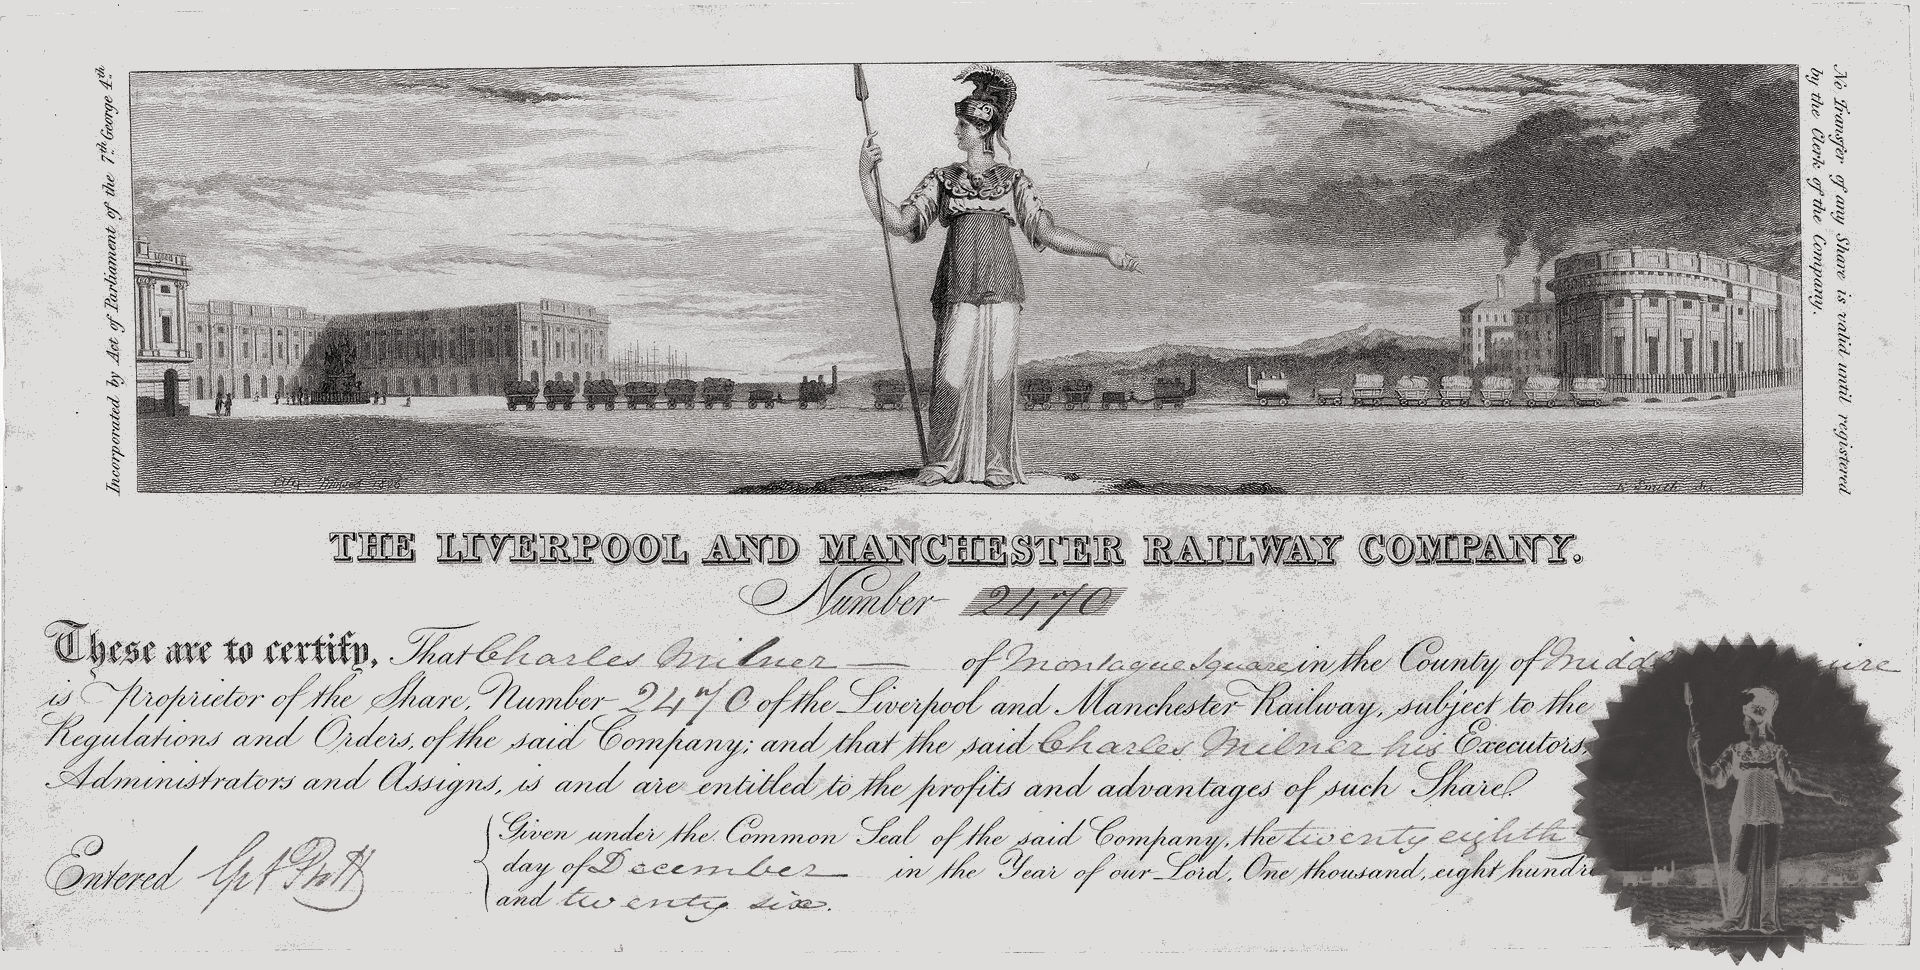 Incorporated by Act of Parliament of the 7th George 4th
No Transfer of any Share is valid until registered
by the Clerk of the Company.
THE LIVERPOOL AND MANCHESTER RAILWAY COMPANY.
Number 2470
These are to certify, That Charles Milner — of Montague Square in the County of
is Proprietor of the Share, Number 2470 of the Liverpool and Manchester Railway, subject to the
Regulations and Orders, of the said Company; and that the said Charles Milner his Executors,
Administrators and Assigns, is and are entitled to the profits and advantages of such Share.
Given under the Common Seal of the said Company, the twenty eighth
day of December in the Year of our Lord, One thousand, eight hundre
and twenty six.
Entered